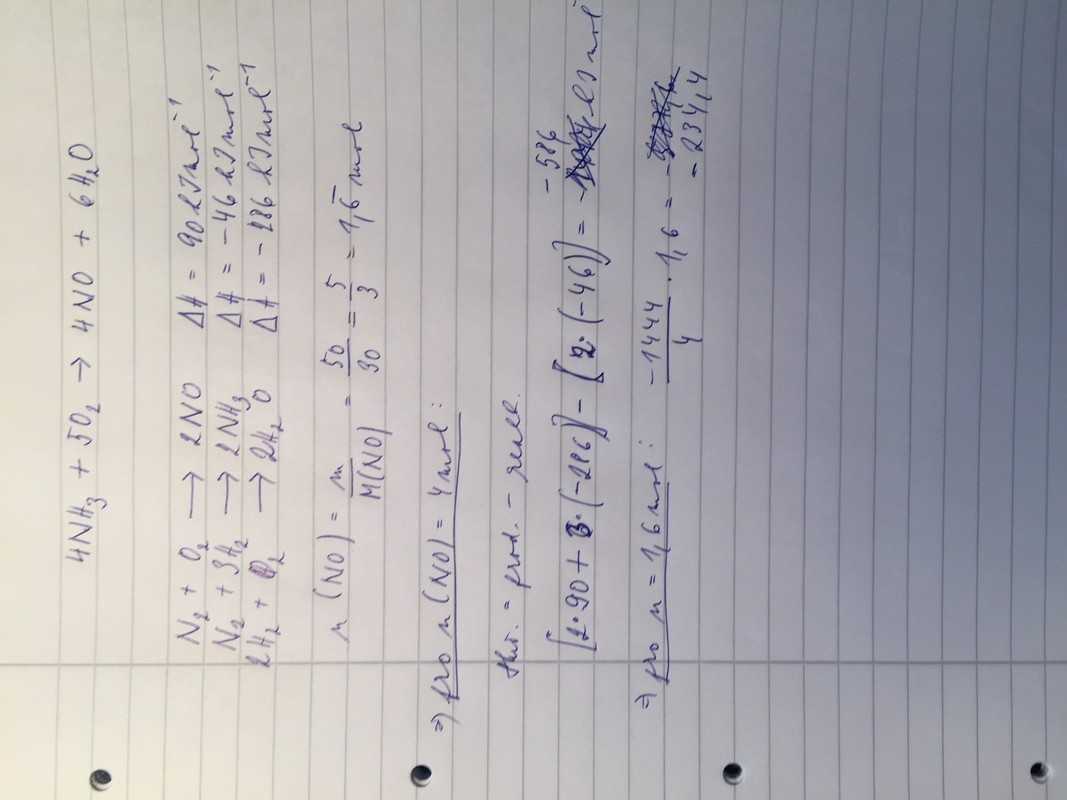 4NH₃ + 5O₂ → 4NO + 6H₂O
N₂ + O₂ → 2NO ΔH = 90 kJ mol⁻¹
N₂ + 3H₂ → 2NH₃ ΔH = -46 kJ mol⁻¹
2H₂ + O₂ → 2H₂O ΔH = -286 kJ mol⁻¹
n (NO) = m / M(NO) = 50 / 30 = 5 / 3 = 1,6̅ mol
⇒) pro n (NO) = 4 mol :
= prod. - reakt.
-586
[2·90 + 3·(-286)] - [2·(-46)] = kJ mol
⇒) pro n = 1,6 mol : -1444 / 4 · 1,6 = -
- 234,4